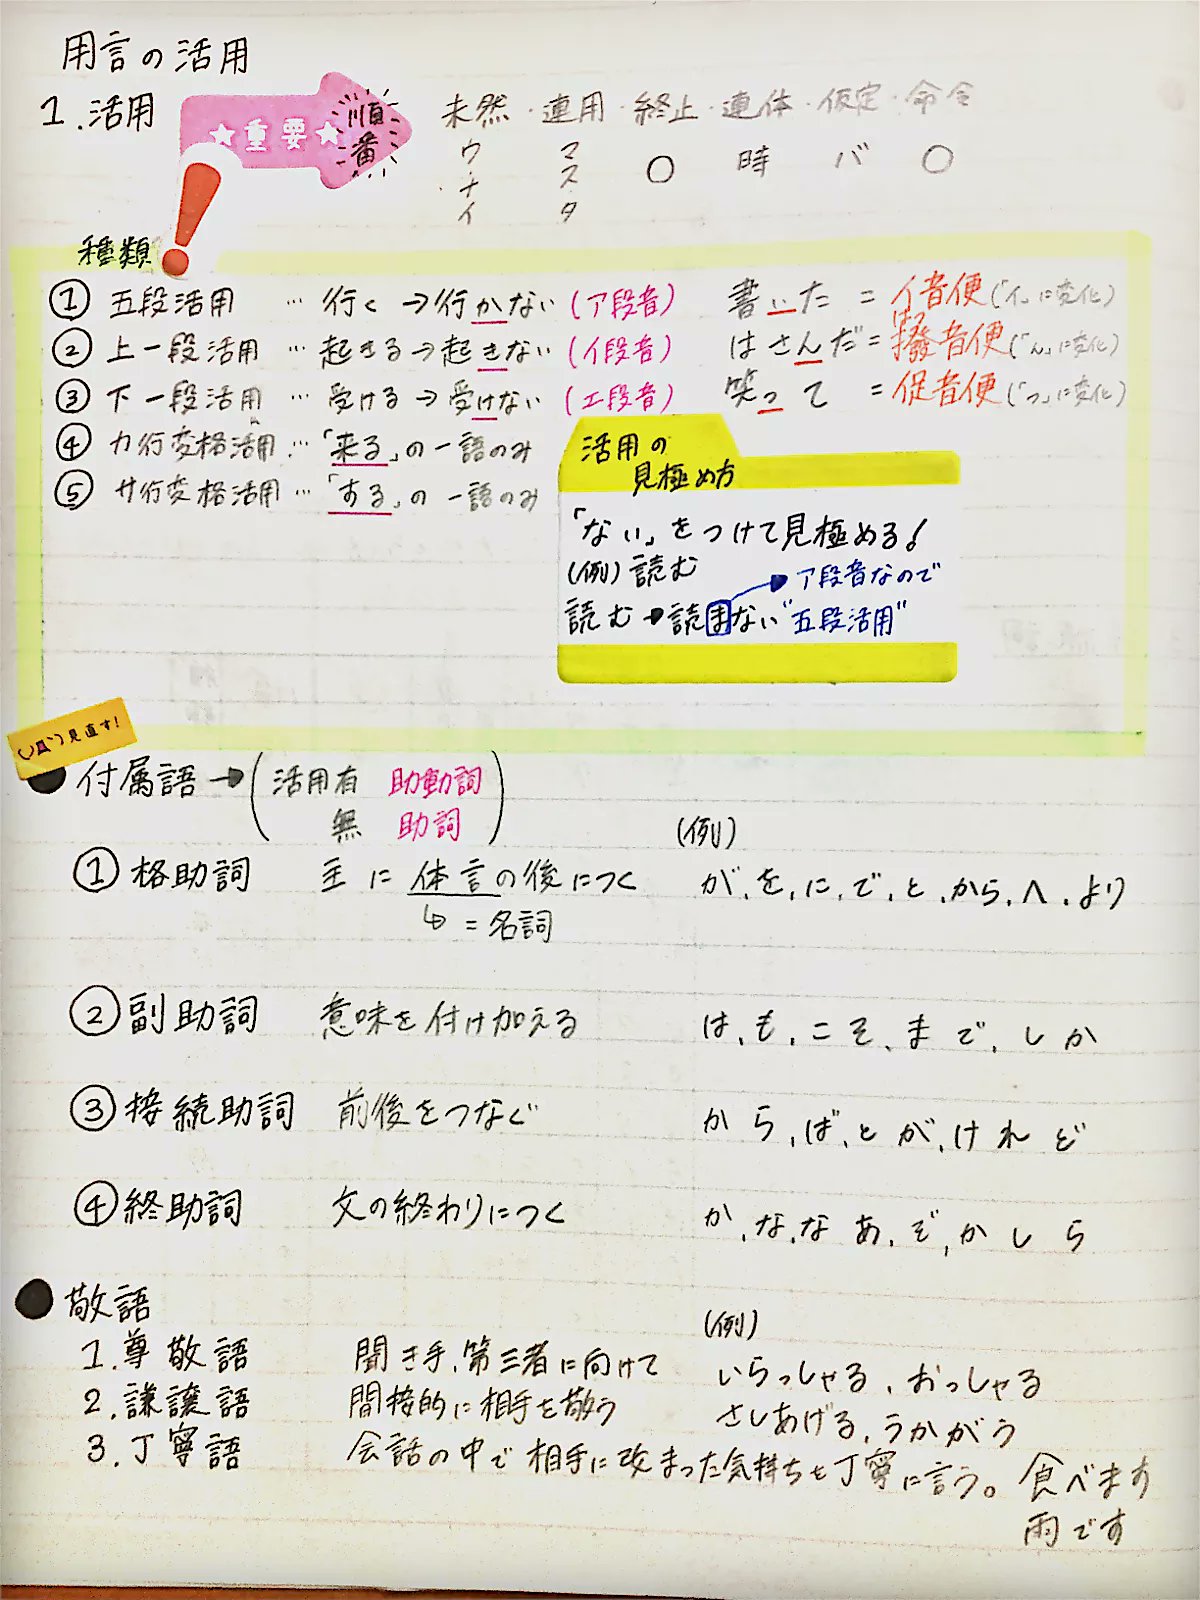 用言の活用
1.活用 ★重要★ 順番
未然・連用・終止・連体・仮定・命令
ウ マ ○ 時 バ ○
ナ ス
イ タ
種類
① 五段活用 … 行く→行かない (ア段音) 書いた = イ音便(「い」に変化)
② 上一段活用 … 起きる→起きない (イ段音) はさんだ = 撥音便(「ん」に変化)
はつ
③ 下一段活用 … 受ける→受けない (エ段音) 笑って = 促音便(「っ」に変化)
④ カ行変格活用 … 「来る」の一語のみ
⑤ サ行変格活用 … 「する」の一語のみ
活用の
見極め方
「ない」をつけて見極める!
(例) 読む
ア段音なので
読む→読まない "五段活用"
見直す!
● 付属語→(活用有 助動詞
無 助詞)
(例)
① 格助詞 主に体言の後につく が、を、に、で、と、から、へ、より
↳ = 名詞
② 副助詞 意味を付け加える は、も、こそ、まで、しか
③ 接続助詞 前後をつなぐ から、ば、と が、けれど
④ 終助詞 文の終わりにつく か、な、なあ、ぞ、かしら
● 敬語
(例)
1.尊敬語 聞き手、第三者に向けて いらっしゃる、おっしゃる
2.謙譲語 間接的に相手を敬う さしあげる、うかがう
3.丁寧語 会話の中で相手に改まった気持ちを丁寧に言う。 食べます
雨です